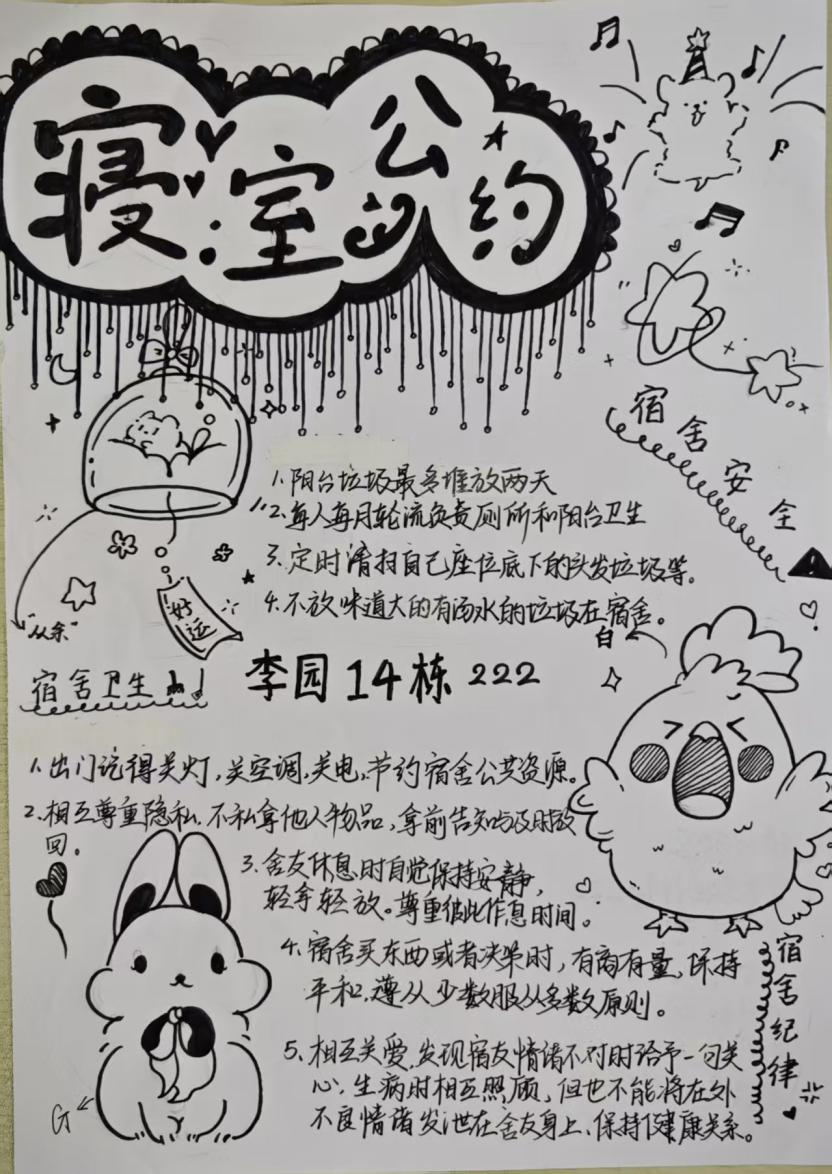 寝室公约
宿舍安全
1、阳台垃圾最多堆放两天
2、每人每月轮流负责厕所和阳台卫生
3、定时清扫自己座位底下的头发垃圾等。
4、不放味道大的有汤水的垃圾在宿舍。
好运
"从余"
白
宿舍卫生
李园14栋 222
1、出门记得关灯,关空调,关电,节约宿舍公共资源。
2、相互尊重隐私,不私拿他人物品,拿前告知与及时放
回。
3、舍友休息时自觉保持安静,
轻拿轻放。尊重彼此作息时间。
4、宿舍买东西或者决策时,有商有量,保持
平和,遵从少数服从多数原则。
5、相互关爱,发现宿友情绪不对时给予一句关
心,生病时相互照顾,但也不能将在外
不良情绪发泄在舍友身上、保持健康关系。
宿舍纪律
G